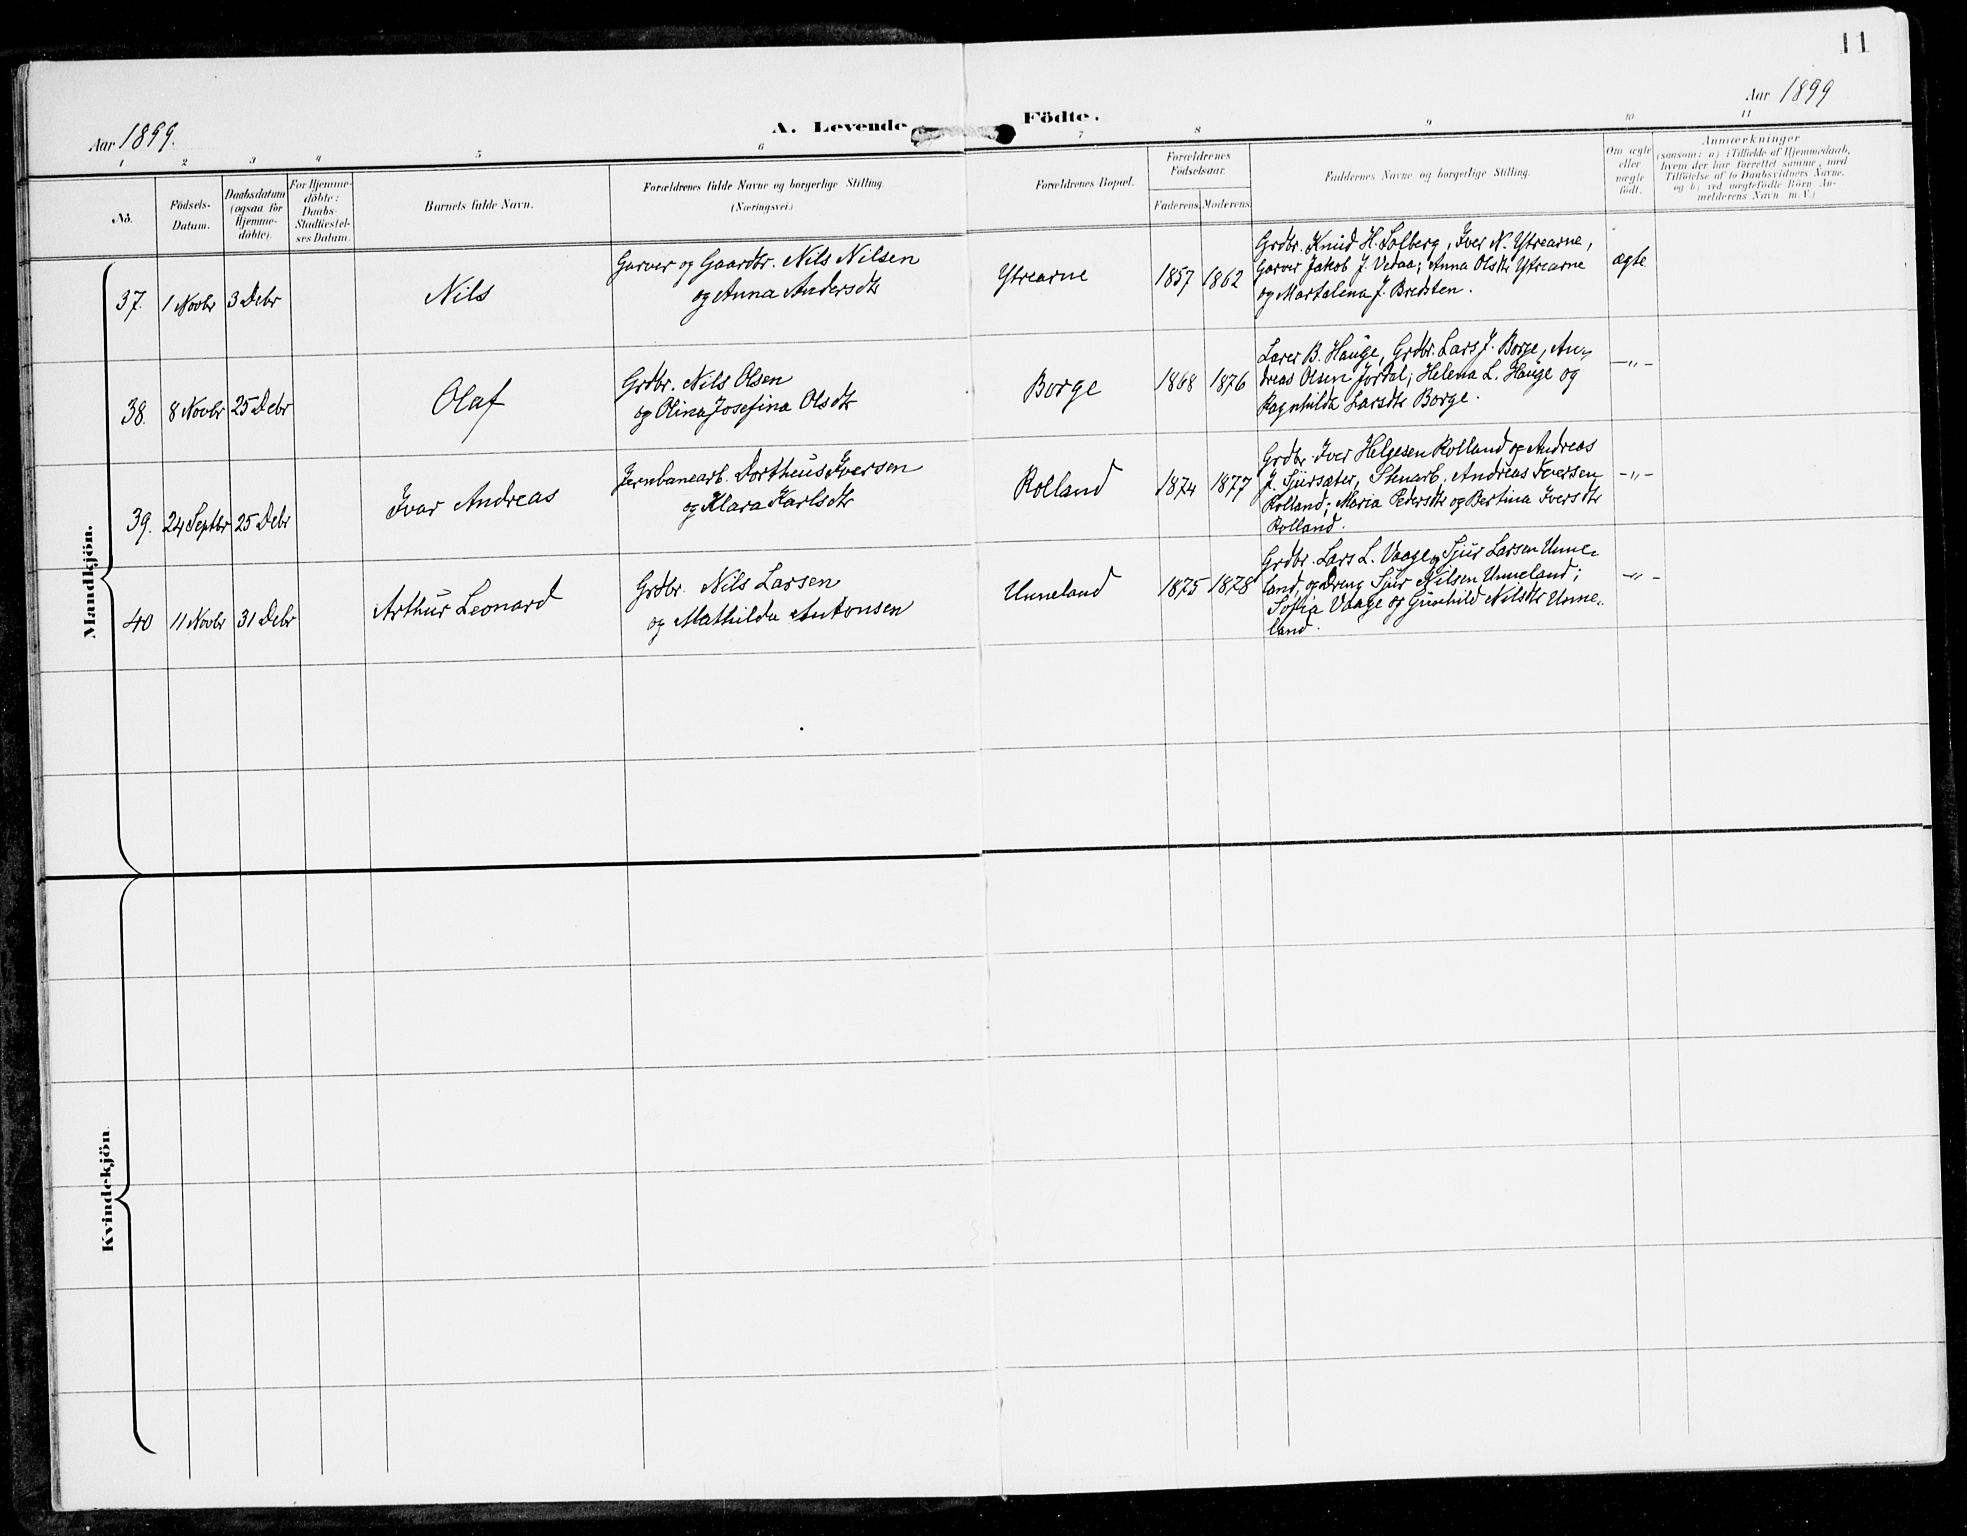 11
Aar 1899.
A. Levende Födte.
Aar 1899
1 2 3 4 5 6 7 8 9 10 11
No.
Födsels-
Datum.
Daabsdatum
(ogsaa for
Hjemme-
döbte).
For Hjemme-
döbte:
Daabs-
Stadfæstel-
ses Datum.
Barnets fulde Navn.
Forældrenes fulde Navne og borgerlige Stilling.
(Næringsvei.)
Forældrenes Bopæl.
Forældrenes
Födselsaar.
Faderens. Moderens.
Faddernes Navne og borgerlige Stilling.
Om ægte
eller
uægte
födt.
Anmærkninger
(saasom: a) i Tilfælde af Hjemmedaab,
hvem der har forrettet samme, med
Tilföielse af to Daabsvidners Navne,
og b) ved uægtefödte Börn An-
melderens Navn m.V.)
Mandkjön.
37. 1 Novbr 3 Debr
Nils
Garver og Gaardbr. Nils Nilsen
og Anna Andersdtr
Ytrearne
1857 1862
Grdbr. Knud H. Solberg, Iver N. Ytrearne,
Garver Jakob J. Vedaa; Anna Olsdtr Ytrearne
og Martalena J. Bredsten.
ægte
38. 8 Novbr 25 Debr
Olaf
Grdbr. Nils Olsen
og Olina Josefina Olsdtr
Borge
1868 1876
Lærer B. Hauge, Grdbr. Lars J. Borge, An-
dreas Olsen Jordal; Helena L. Hauge og
Ragnhilda Larsdtr Borge.
-"-
39. 24 Septbr 25 Debr
Ivar Andreas
Jernbanearb. Dortheus Iversen
og Klara Karlsdtr
Rolland
1874 1877
Grdbr. Iver Helgesen Rolland og Andreas
J. Sjursæter, Stenarb. Andreas Iversen
Rolland; Maria Pedersdtr og Bertina Iversdtr
Rolland.
-"-
40 11 Novbr 31 Debr
Arthur Leonard
Grdbr. Nils Larsen
og Mathilda Antonsen
Unneland
1875 1878
Grdbr. Lars L. Vaage og Sjur Larsen Unne-
land, og Dreng Sjur Nilsen Unneland;
Sofia Vaage og Gunhild Nilsdtr Unne-
land.
-"-
Kvindekjön.